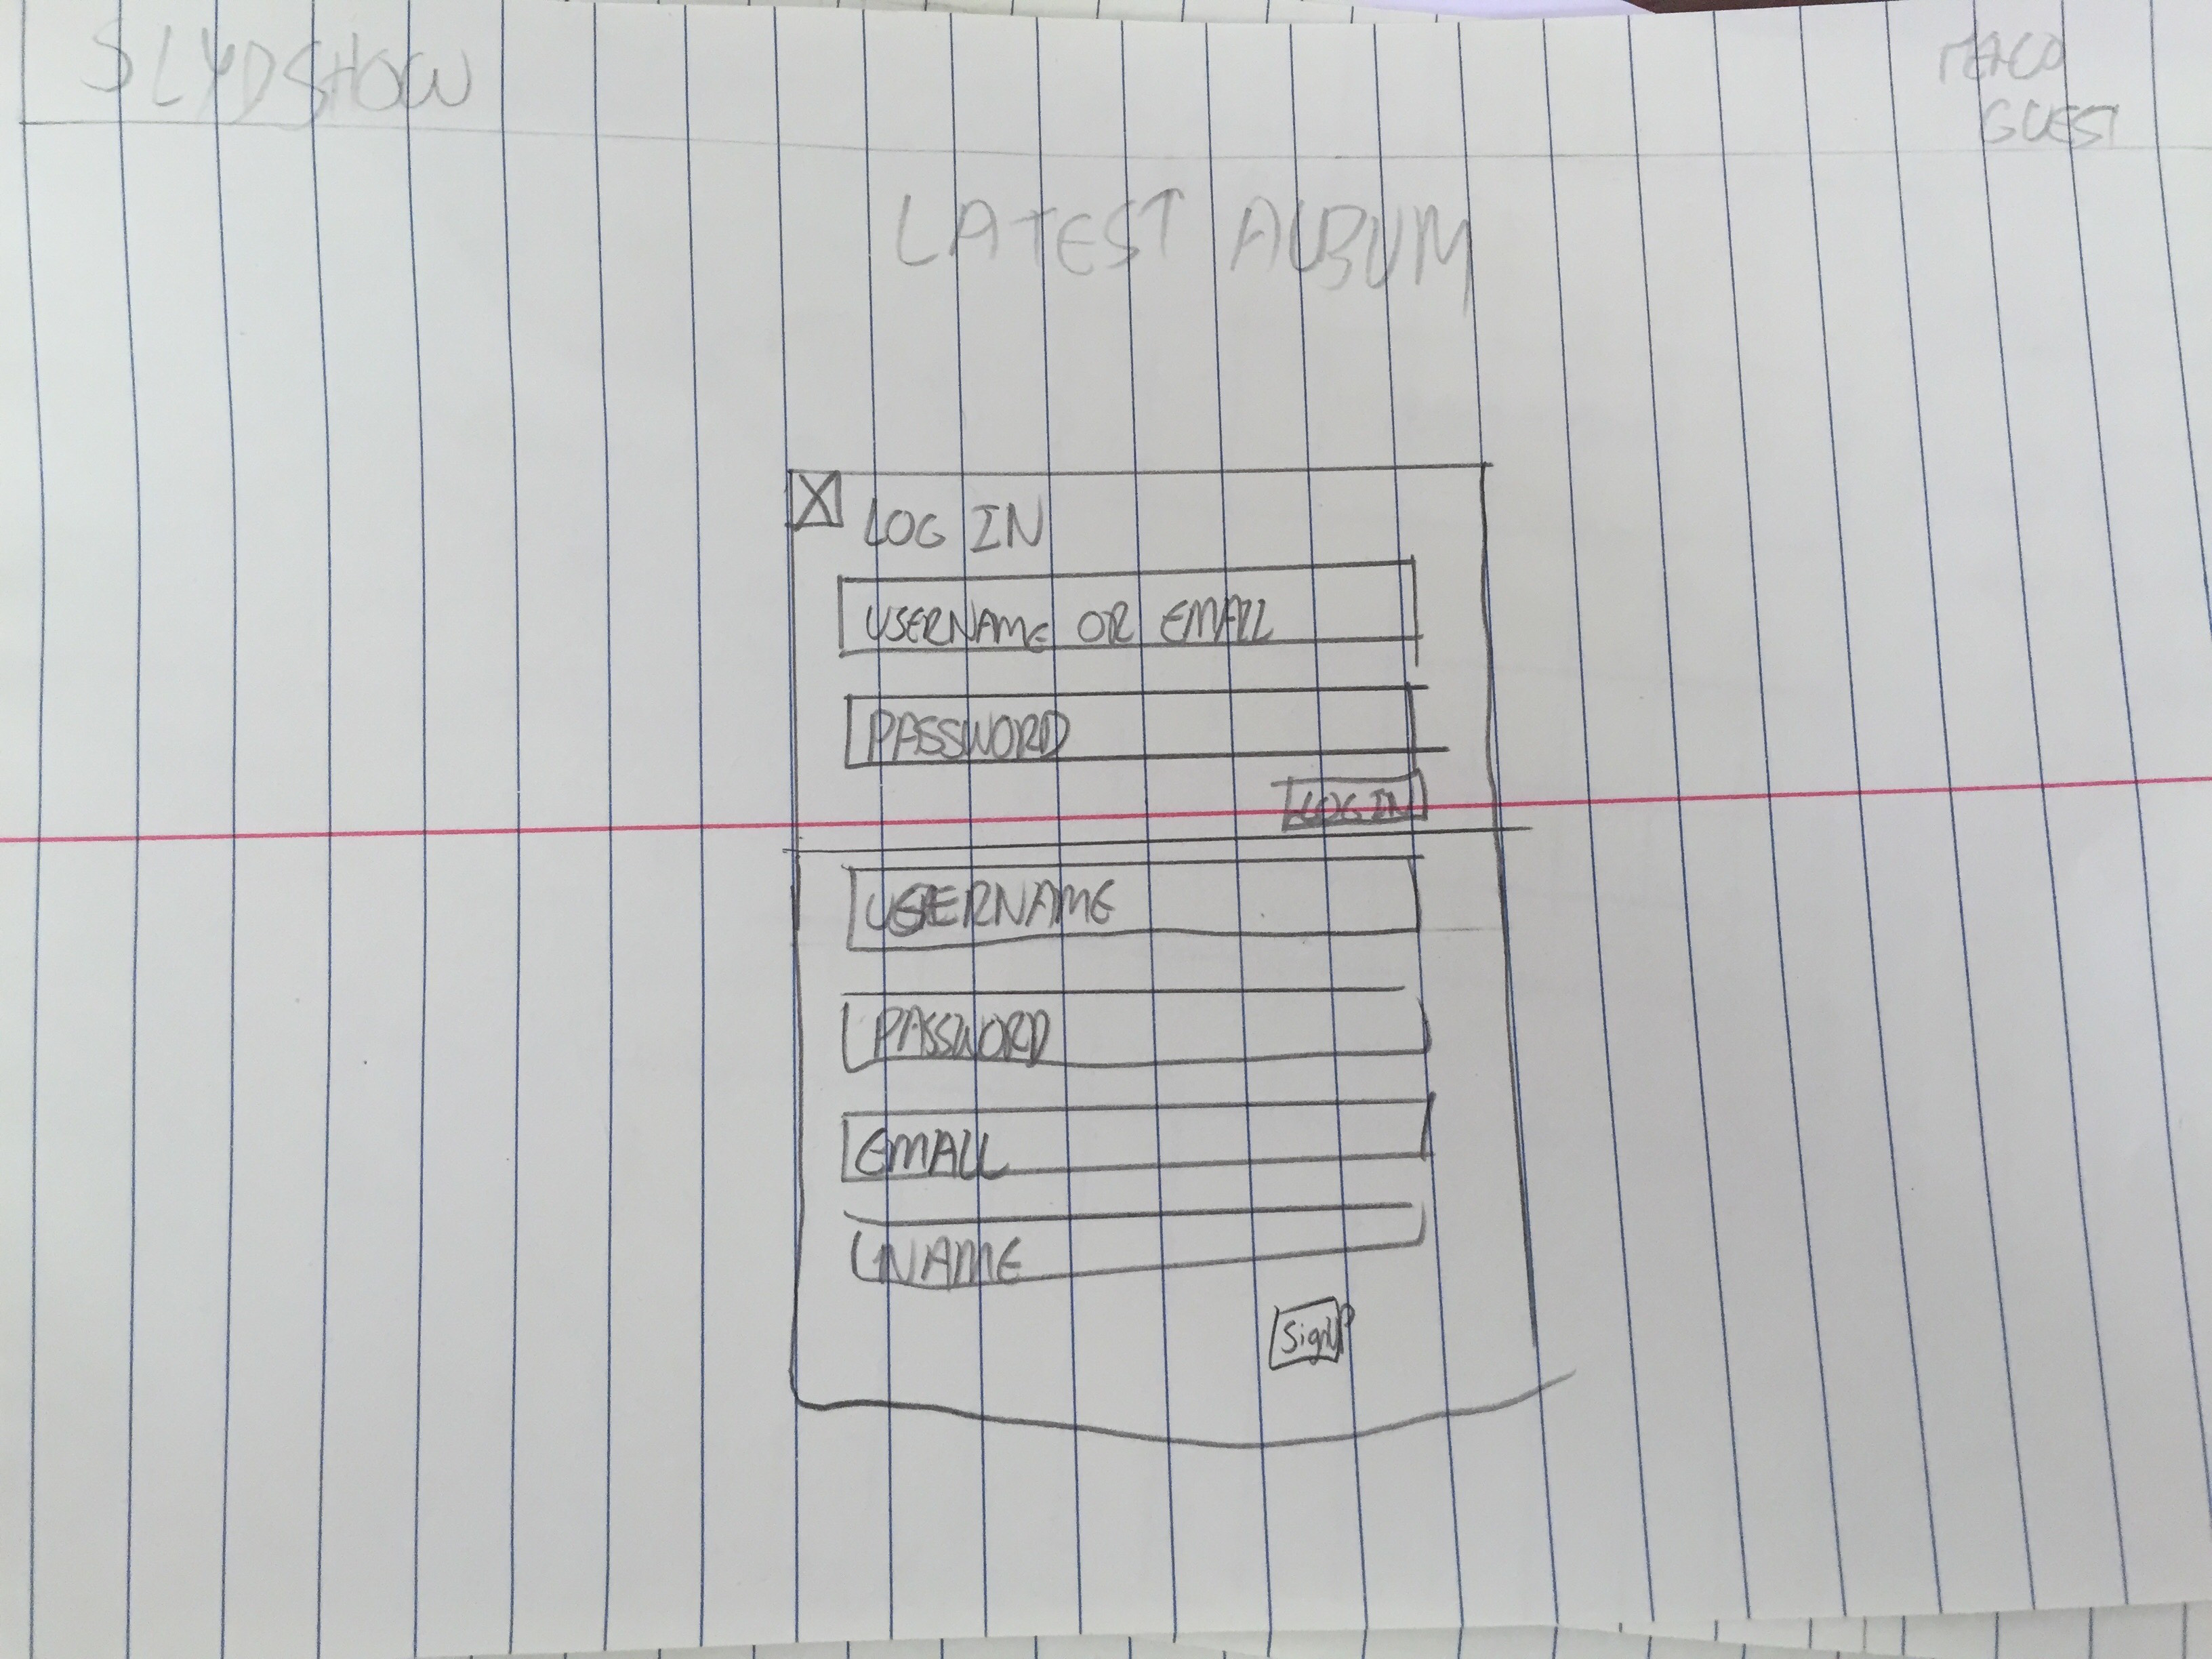 SLYDSHOW
GUEST
LATEST ALBUM
X LOG IN
USERNAME OR EMAIL
PASSWORD
LOG IN
USERNAME
PASSWORD
EMAIL
NAME
SignUP